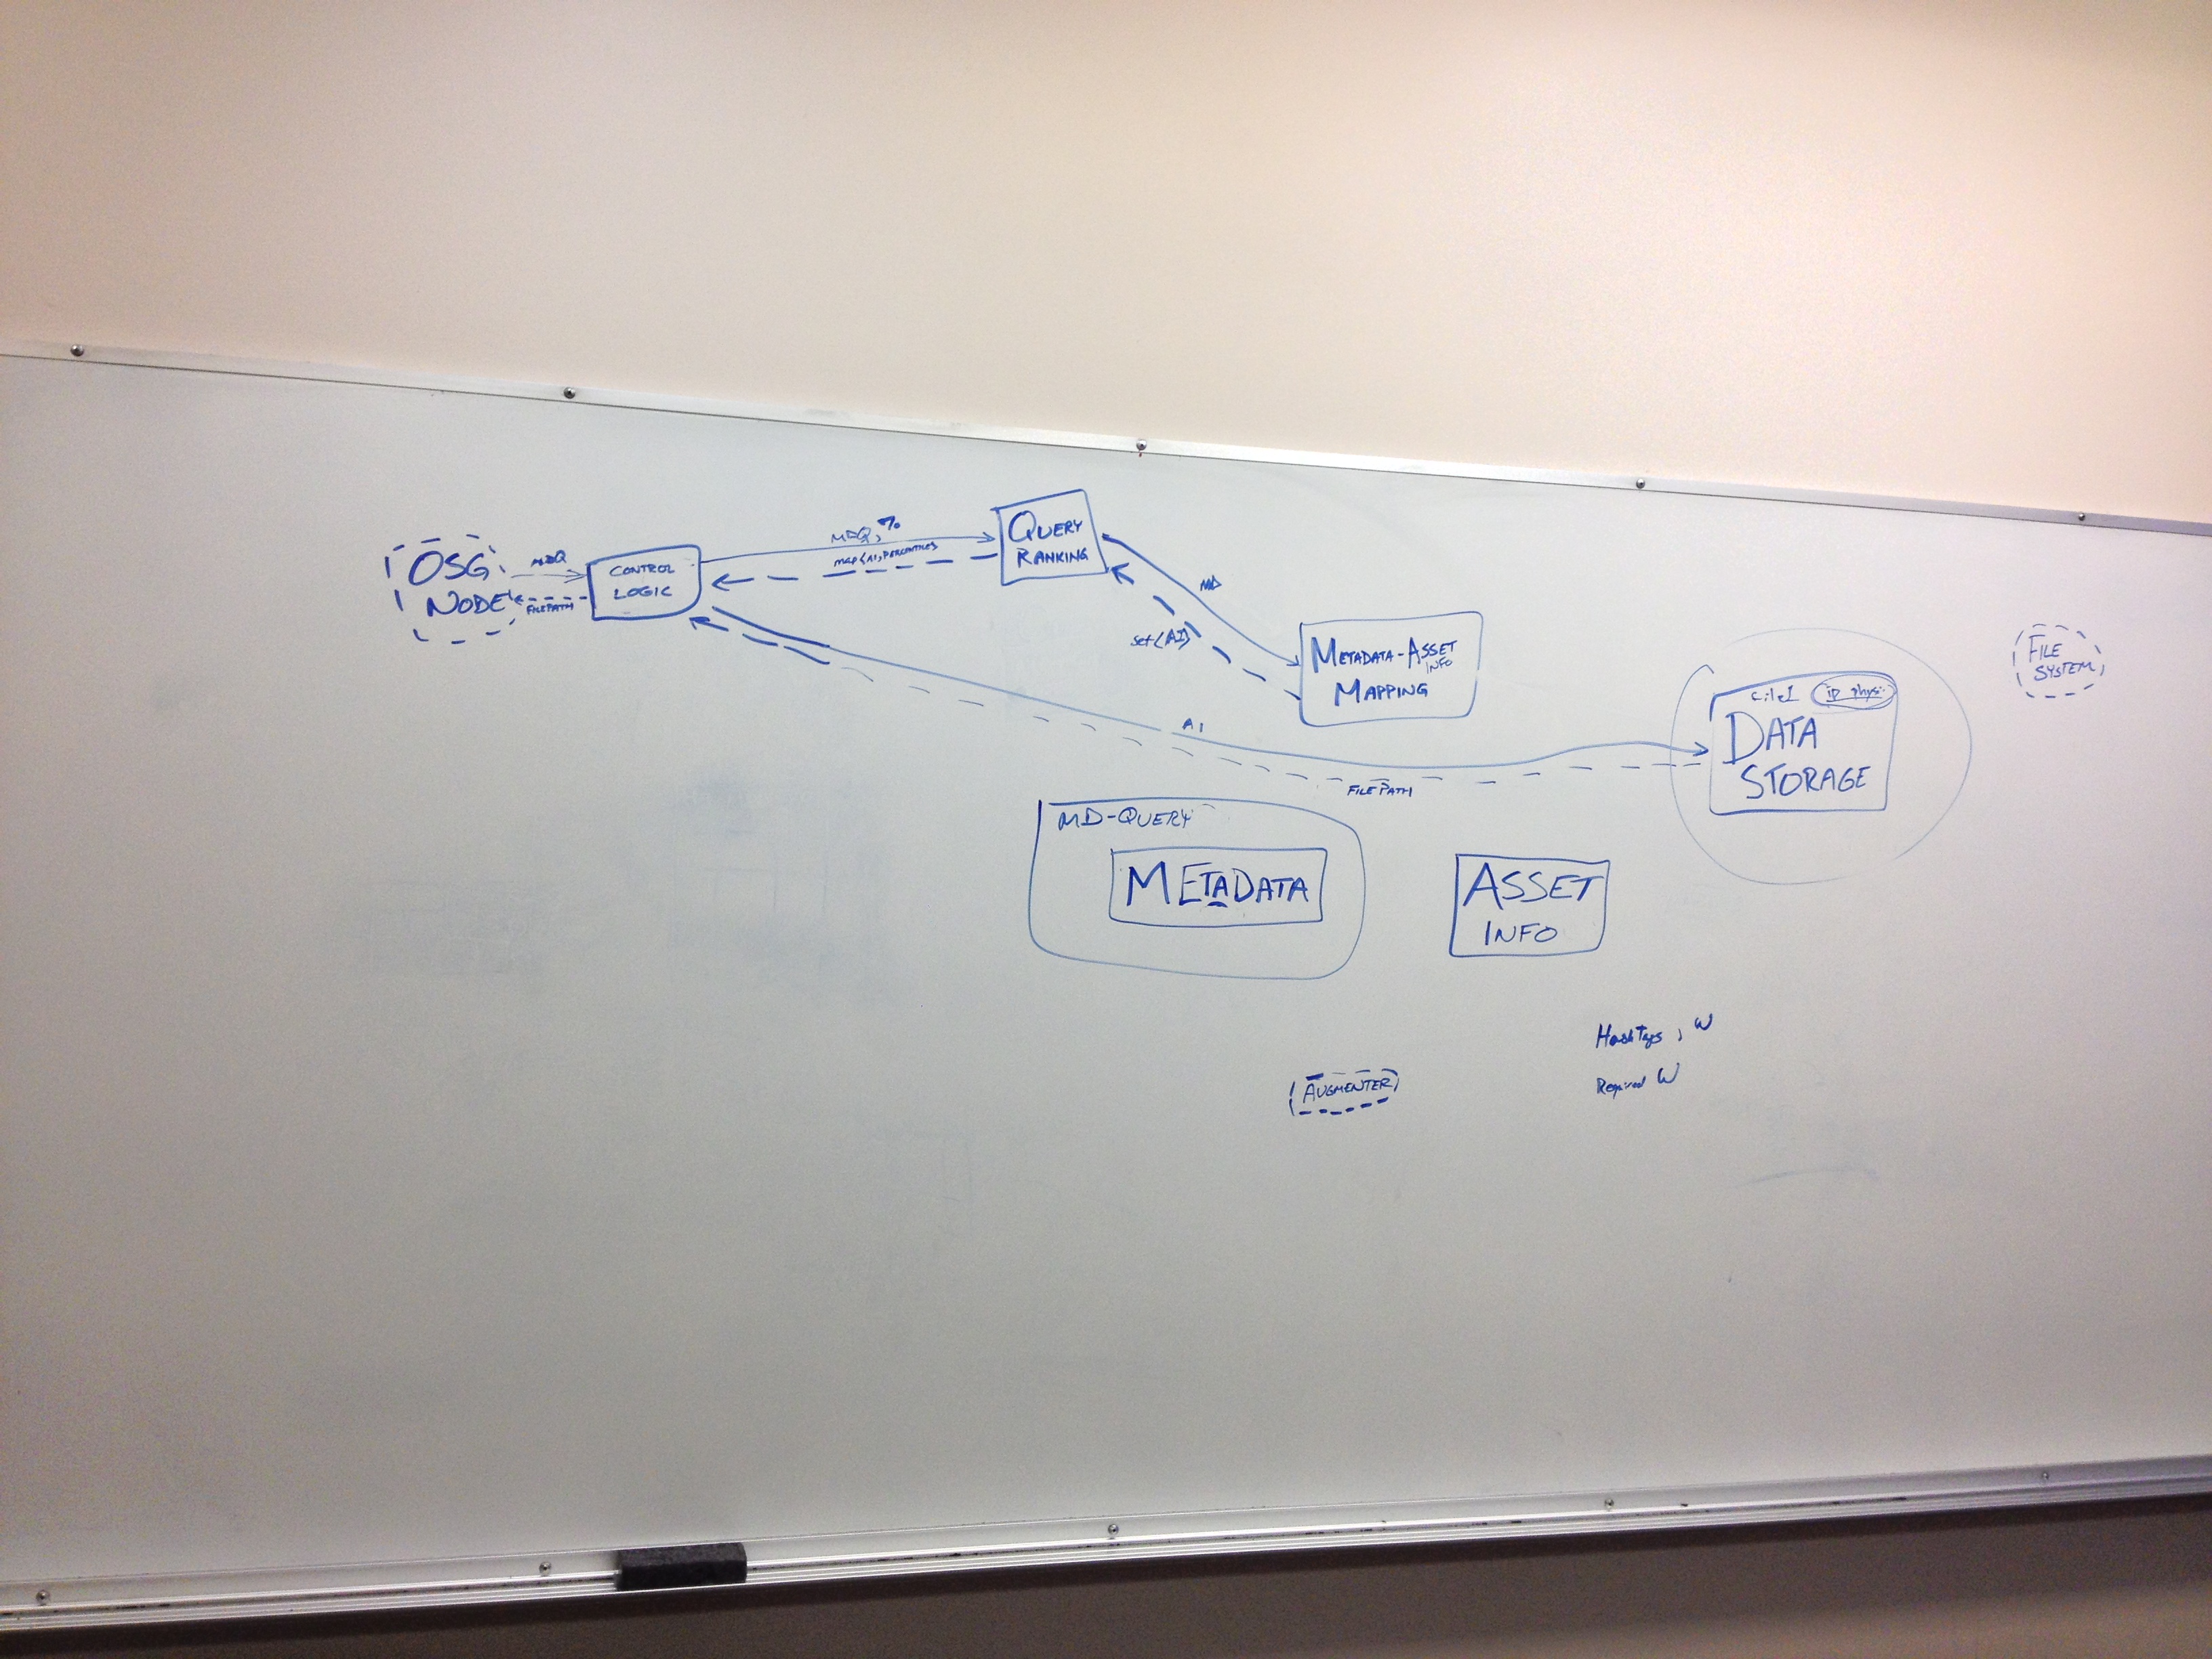 OSG
NODE
MDQ
FILEPATH
CONTROL
LOGIC
MDQ, %
MAP<AI, PERCENTILE>
QUERY
RANKING
MD
Set<AI>
METADATA-ASSET
INFO
MAPPING
AI
FILEPATH
DATA
STORAGE
FILE
SYSTEM
MD-QUERY
METADATA
ASSET
INFO
HashTags, W
Required W
AUGMENTER